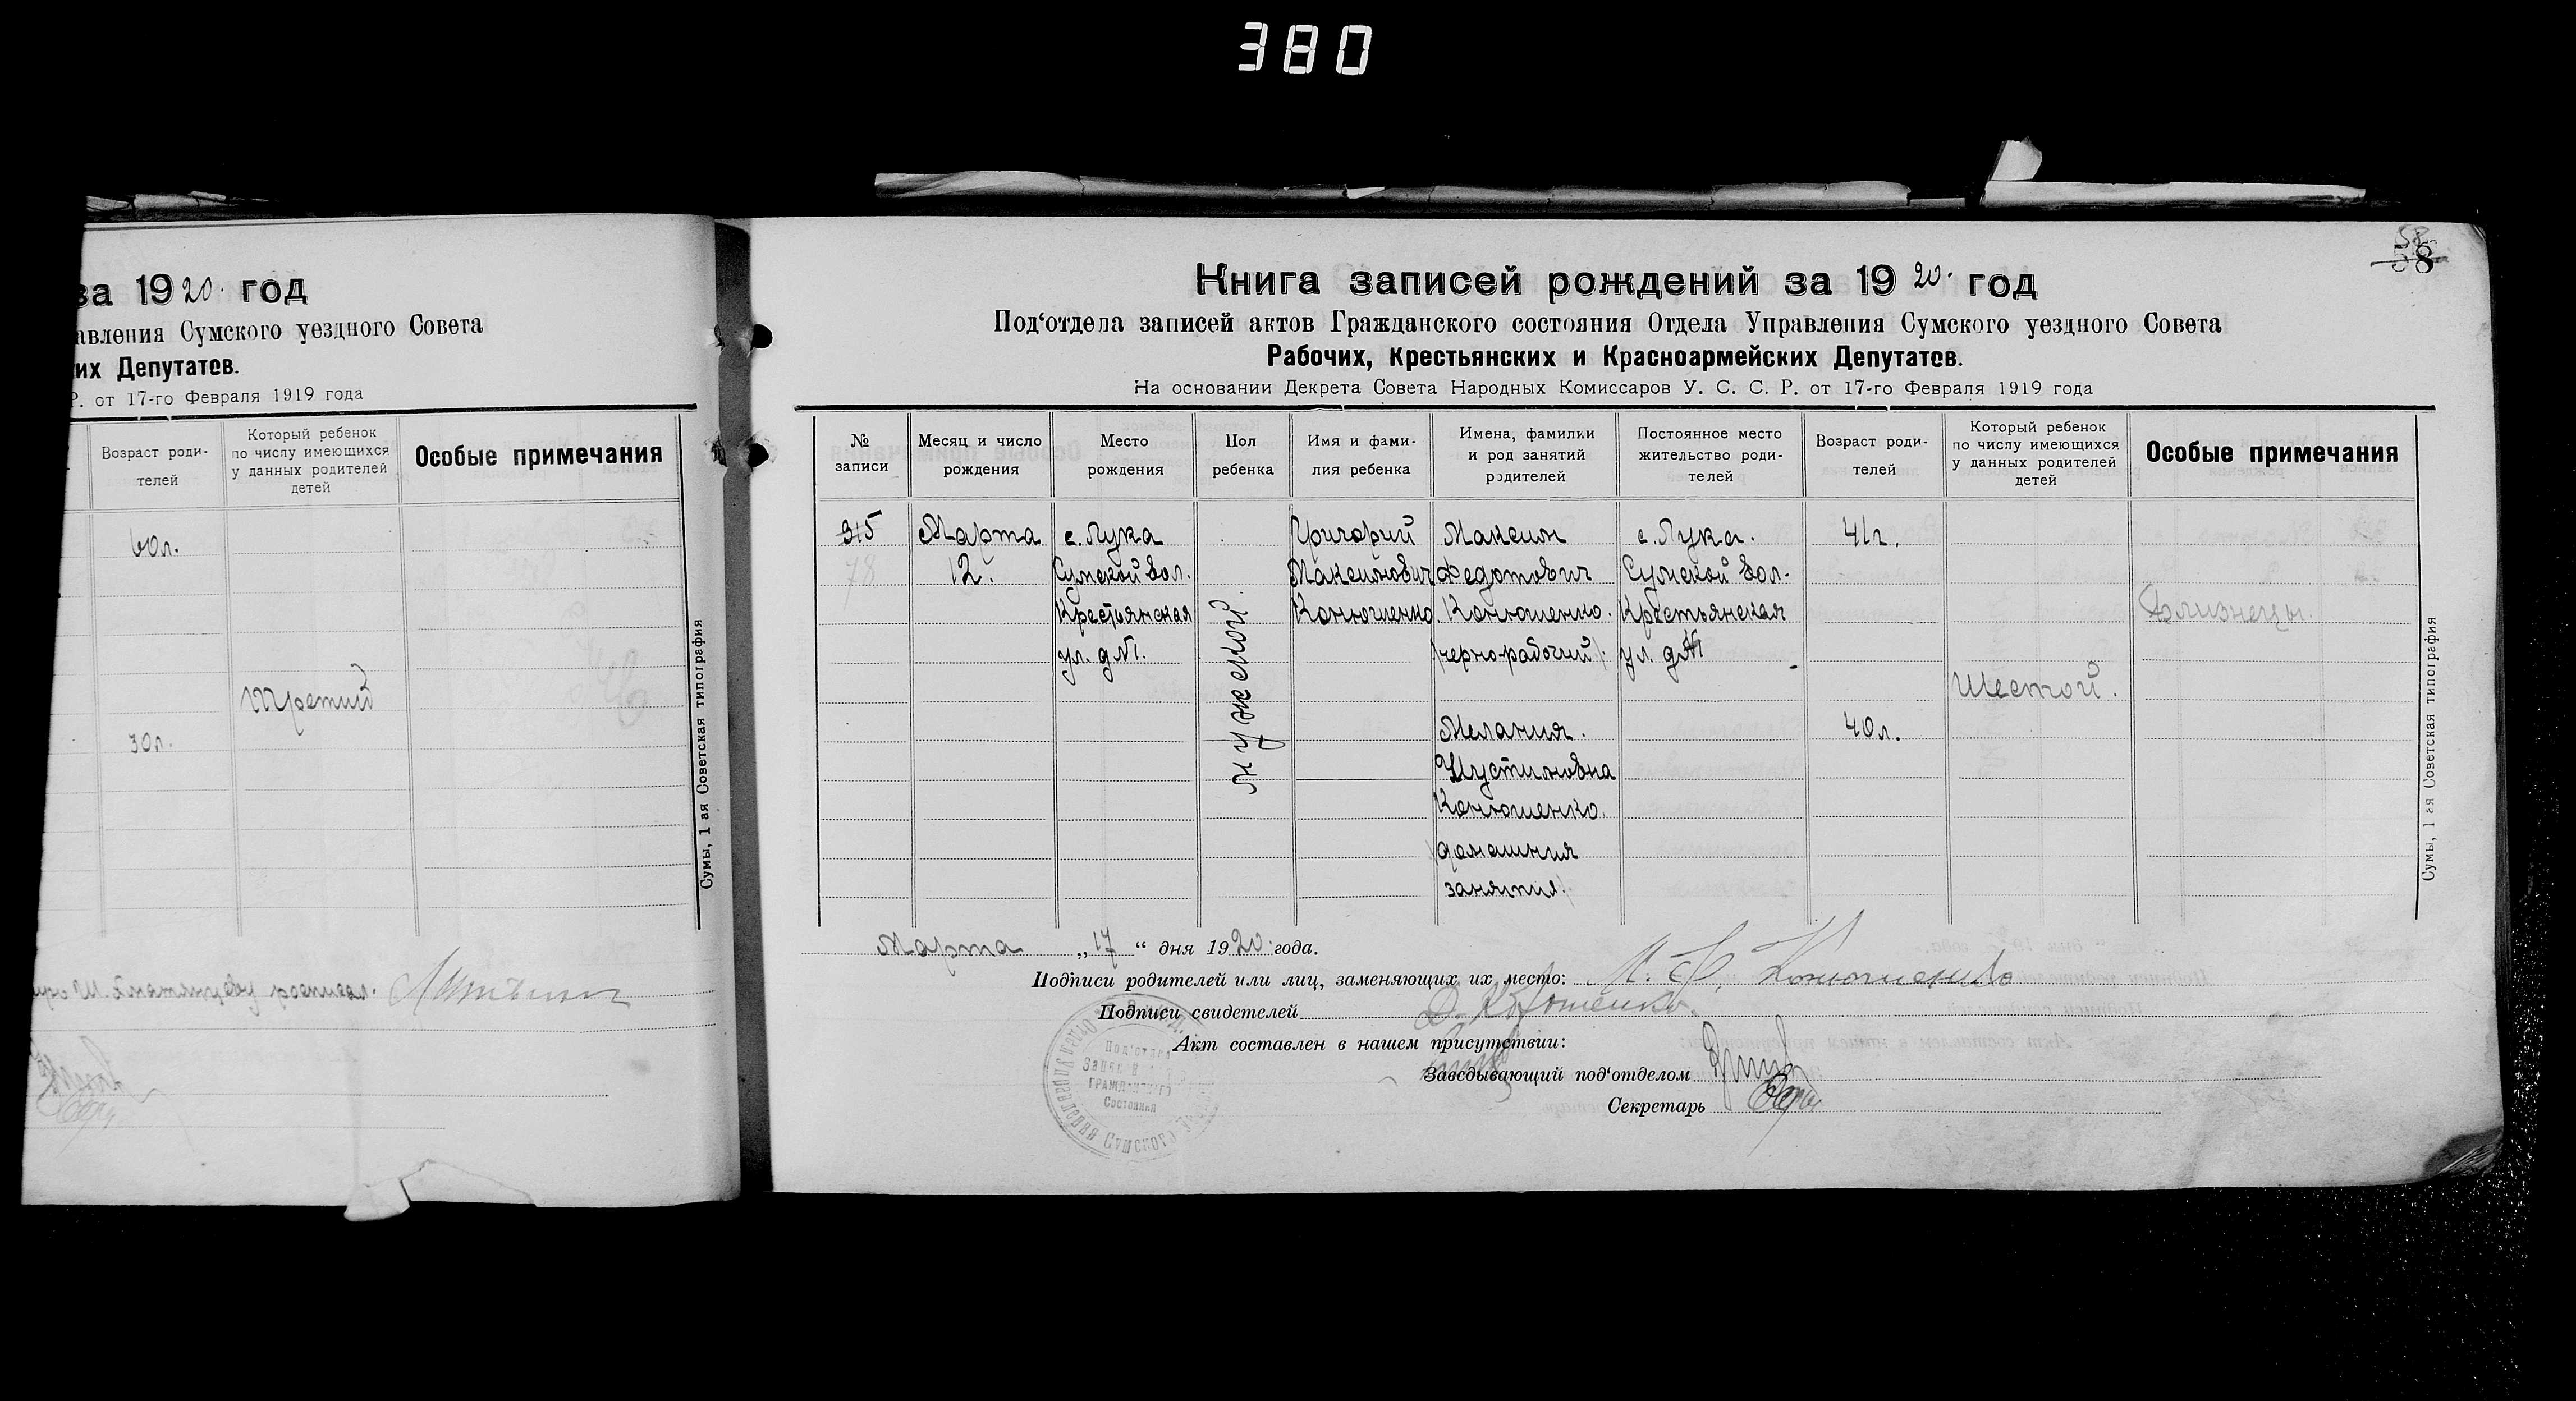 380
за 1920. год
авления Сумского уездного Совета
их Депутатов.
Р. от 17-го Февраля 1919 года
Возраст роди-
телей
Который ребенок
по числу имеющихся
у данных родителей
детей
Особые примечания
60 л.
Третий
30 л.
Сумы, 1 ая Советская типография
58
Книга записей рождений за 1920. год
Под‘отдела записей актов Гражданского состояния Отдела Управления Сумского уездного Совета
Рабочих, Крестьянских и Красноармейских Депутатов.
На основании Декрета Совета Народных Комиссаров У. С. С. Р. от 17-го Февраля 1919 года
№
записи
Месяц и число
рождения
Место
рождения
Пол
ребенка
Имя и фами-
лия ребенка
Имена, фамилии
и род занятий
родителей
Постоянное место
жительство роди-
телей
Возраст роди-
телей
Который ребенок
по числу имеющихся
у данных родителей
детей
Особые примечания
315
78
Марта
12.
с. Лука
Сумской вол.
Крестьянская
ул. д №1.
мужской.
Григорий
Максимович
Конюшенко
Максим
Федотович
Конюшенко.
(чернорабочий).
Мелания.
Иустиновна
Конюшенко.
(домашния
занятия).
с. Лука.
Сумской вол.
Крестьянская
ул. д №1
41 г.
40 л.
Шестой.
Близнецы.
Сумы, 1 ая Советская типография
Марта „17“ дня 1920. года.
Подписи родителей или лиц, заменяющих их место: М. Ф. Конюшенко
Подписи свидетелей
Акт составлен в нашем присутствии:
Заведывающий под‘отделом
Секретарь
Под‘отдел
Записей
Гражданского
Состояния